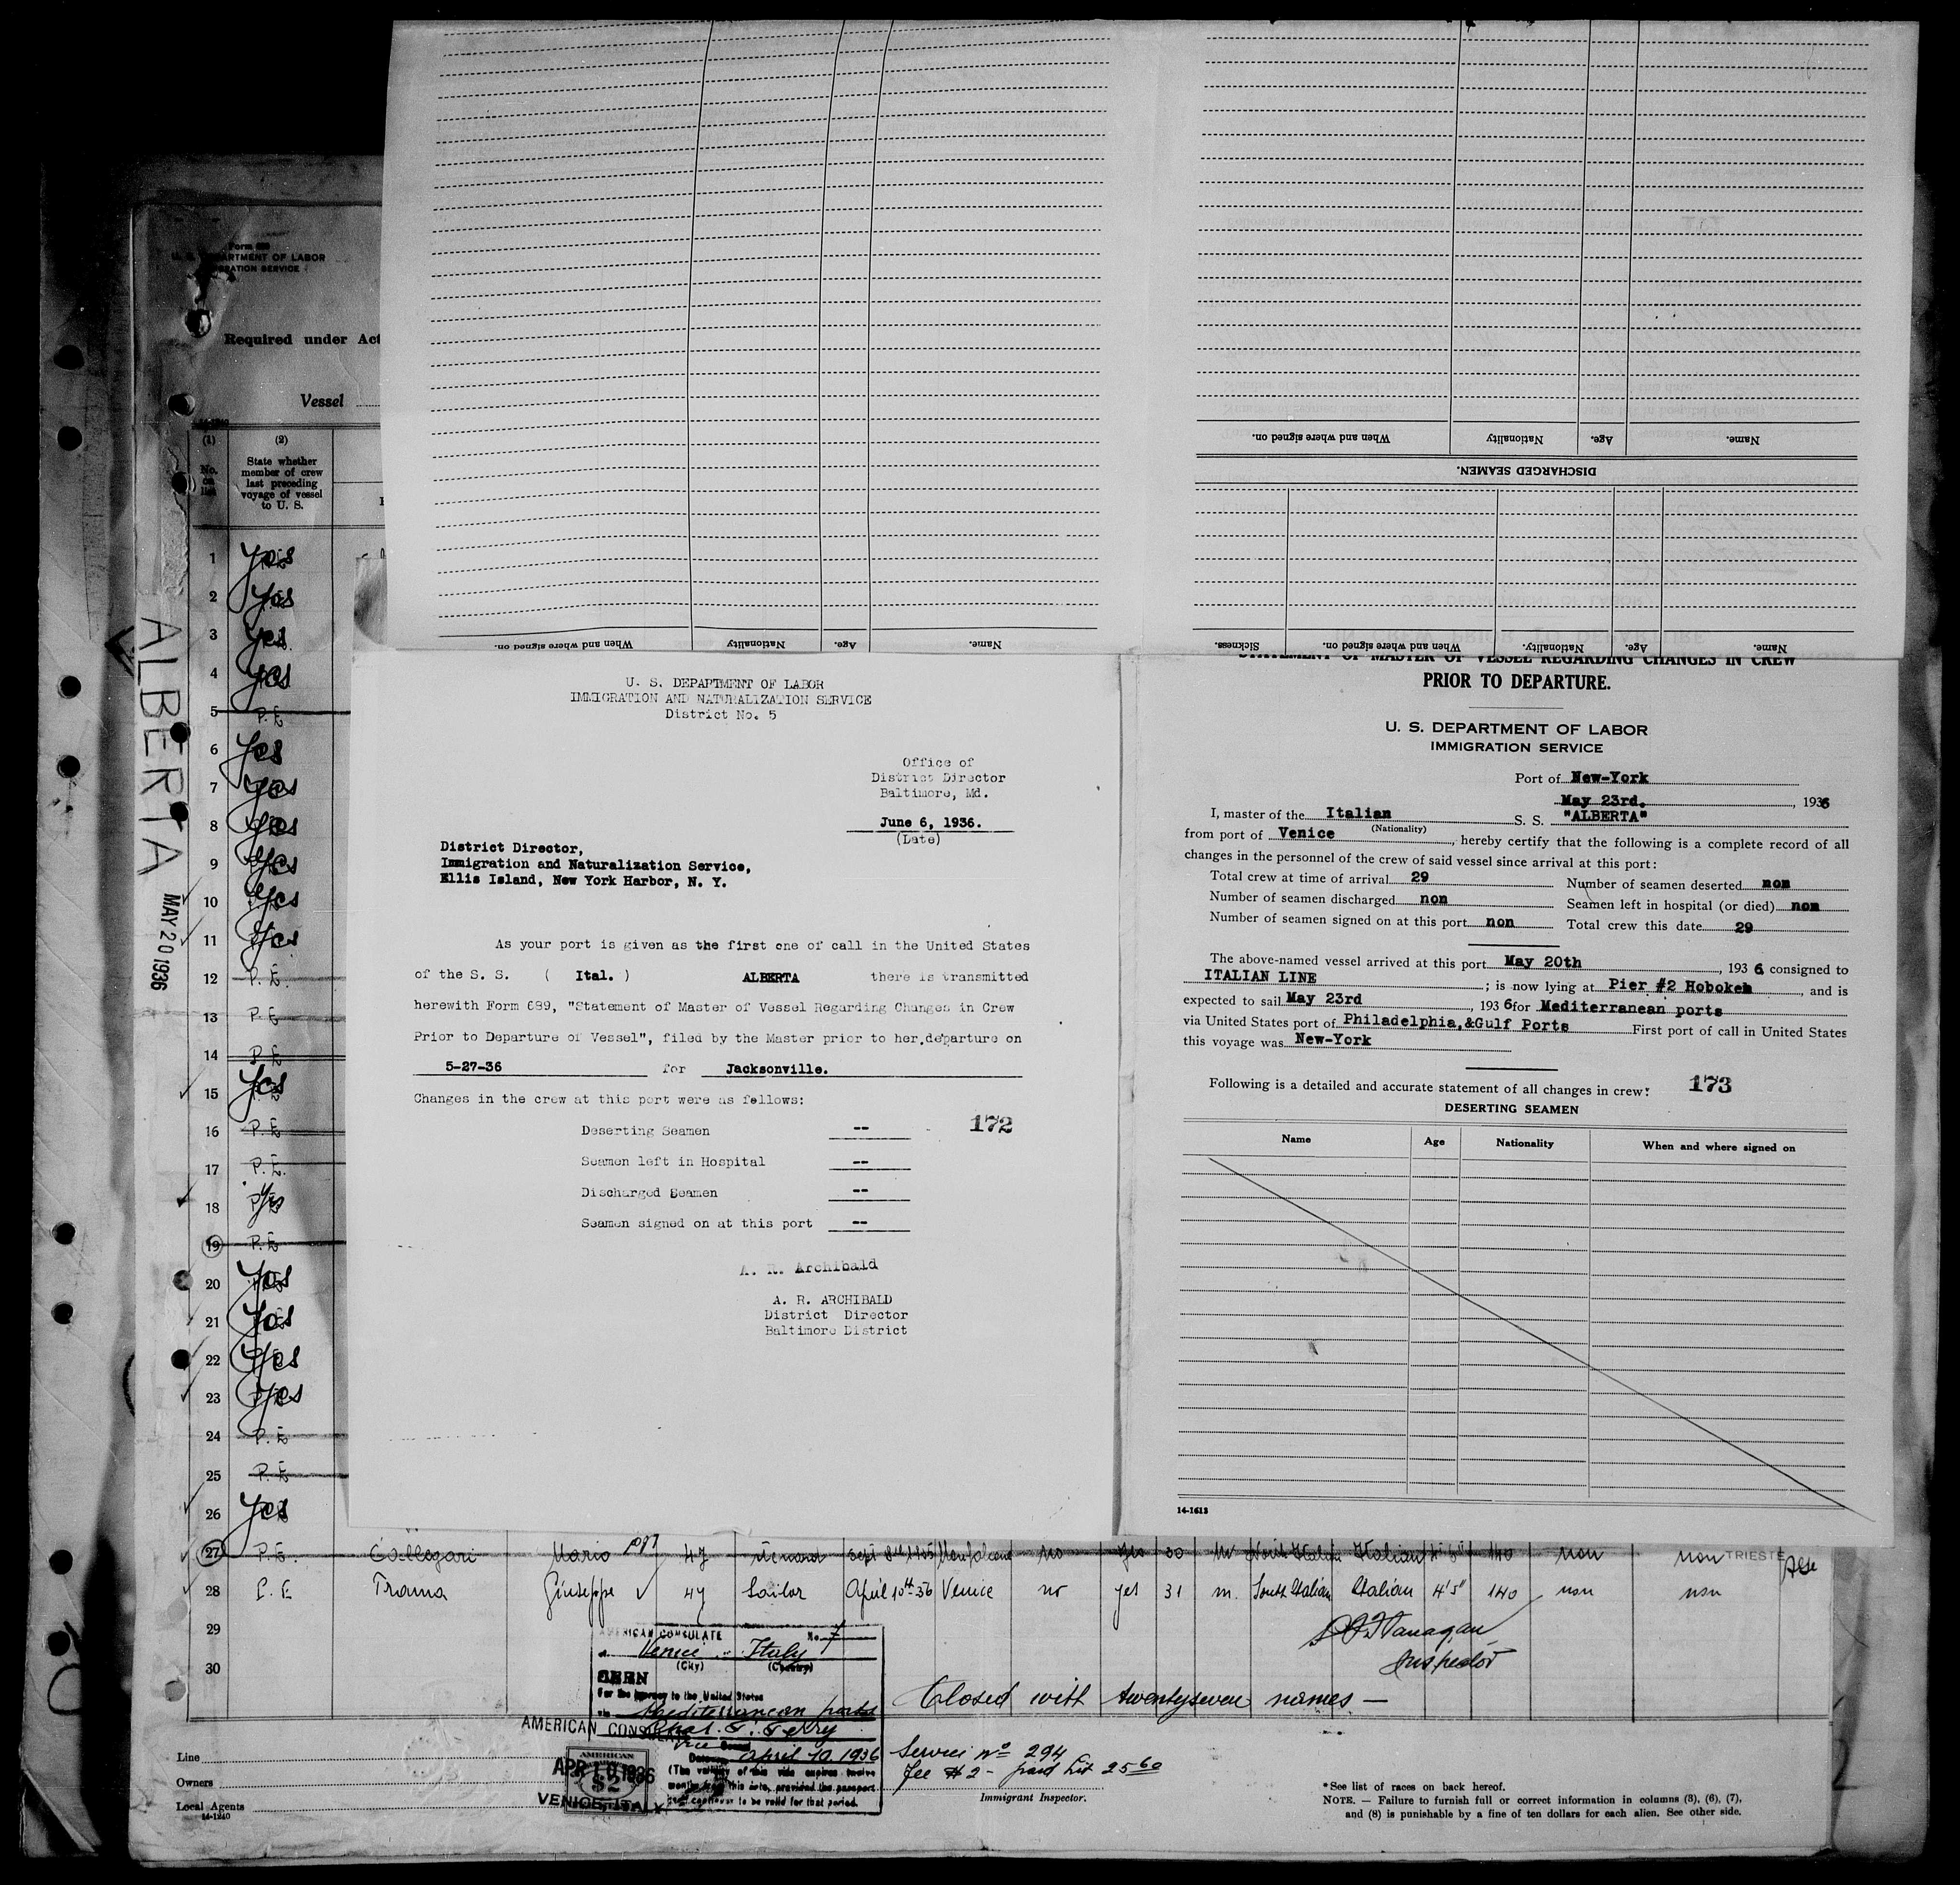 U. S. DEPARTMENT OF LABOR
Required under Act
Vessel
(1) (2)
No. on list
State whether
member of crew
last preceding
voyage of vessel
to U. S.
1 Yes
2 Yes
3 Yes
4 Yes
5 P. E
6 Yes
7 Yes
8 Yes
9 Yes
10 Yes
11 Yes
12 P. E.
13 P. E
14 P. E
15 Yes
16 P. E
17 P. E.
18 Yes
19 P. E
20 Yes
21 Yes
22 Yes
23 Yes
24 P. E
25 P. E
26 Yes
ALBERTA
MAY 20 1936
When and where signed on. Nationality Age. Name.
When and where signed on. Nationality Age. Name.
DISCHARGED SEAMEN.
Sickness. When and where signed on. Nationality. Age. Name.
U. S. DEPARTMENT OF LABOR
IMMIGRATION AND NATURALIZATION SERVICE
District No. 5
Office of
District Director
Baltimore, Md.
June 6, 1936.
(Date)
District Director,
Immigration and Naturalization Service,
Ellis Island, New York Harbor, N. Y.
As your port is given as the first one of call in the United States
of the S. S. ( Ital. ) ALBERTA there is transmitted
herewith Form 689, "Statement of Master of Vessel Regarding Changes in Crew
Prior to Departure of Vessel", filed by the Master prior to her departure on
5-27-36 for Jacksonville.
Changes in the crew at this port were as follows:
172
Deserting Seamen --
Seamen left in Hospital --
Discharged Seamen --
Seamen signed on at this port --
A. R. Archibald
A. R. ARCHIBALD
District Director
Baltimore District
STATEMENT OF MASTER OF VESSEL REGARDING CHANGES IN CREW
PRIOR TO DEPARTURE.
U. S. DEPARTMENT OF LABOR
IMMIGRATION SERVICE
Port of New-York
May 23rd. , 1936
I, master of the Italian S. S. "ALBERTA"
(Nationality)
from port of Venice , hereby certify that the following is a complete record of all
changes in the personnel of the crew of said vessel since arrival at this port:
Total crew at time of arrival 29 Number of seamen deserted non
Number of seamen discharged non Seamen left in hospital (or died) non
Number of seamen signed on at this port non Total crew this date 29
The above-named vessel arrived at this port May 20th , 193 6 consigned to
ITALIAN LINE ; is now lying at Pier #2 Hoboken , and is
expected to sail May 23rd , 193 6 for Mediterranean ports
via United States port of Philadelphia,&Gulf Ports First port of call in United States
this voyage was New-York
Following is a detailed and accurate statement of all changes in crew: 173
DESERTING SEAMEN
Name Age Nationality When and where signed on
14-1613
27 P. E. Callegari Mario 47 no yes 30 m North Italian Italian 140 non non TRIESTE
28 P. E Trama Giuseppe 47 Sailor April 10th 36 Venice no yes 31 m. South Italian Italian 4'5" 140 non non
29
30
Inspector
AMERICAN CONSULATE No. 7
Venice Italy
(City) (Country)
SEEN
For the journey to the United States
via Mediterranean ports
Chas. T. Terry
Vice Consul
Date April 10. 1936
(The validity of this visa expires twelve
months from this date, provided the passport
continues to be valid for that period.
AMERICAN CONSULATE
APR 10 1936
VENICE, ITALY
AMERICAN
$2
Closed with twentyseven names —
Service No 294
Fee $2 - paid Lit 25.60
Immigrant Inspector.
Line
Owners
Local Agents
14-1240
*See list of races on back hereof.
NOTE. — Failure to furnish full or correct information in columns (3), (6), (7),
and (8) is punishable by a fine of ten dollars for each alien. See other side.